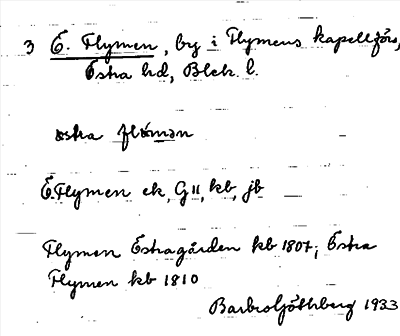 3 Ö. Flymen, by i Flymens kapellförs,
Östra hd, Blek. l.
östra flymən
Ö.Flymen ek, G11, kb, jb
Flymen Östragården kb 1807; Östra
Flymen kb 1810
Barbro Göthberg 1933